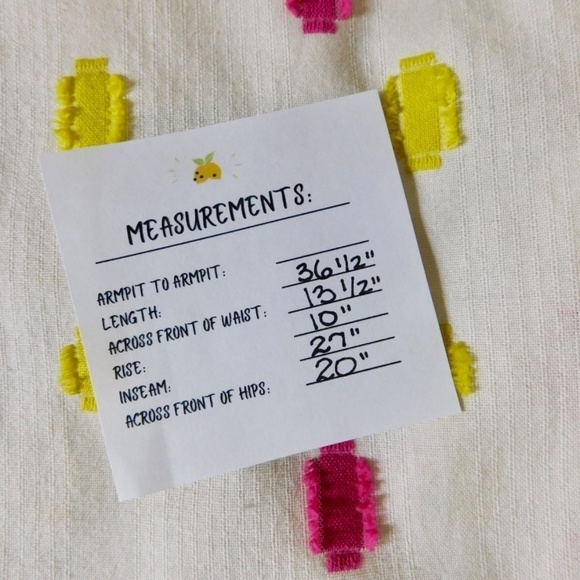 MEASUREMENTS:
ARMPIT TO ARMPIT:
LENGTH: 36 1/2"
ACROSS FRONT OF WAIST: 13 1/2"
RISE: 10"
INSEAM: 27"
ACROSS FRONT OF HIPS: 20"